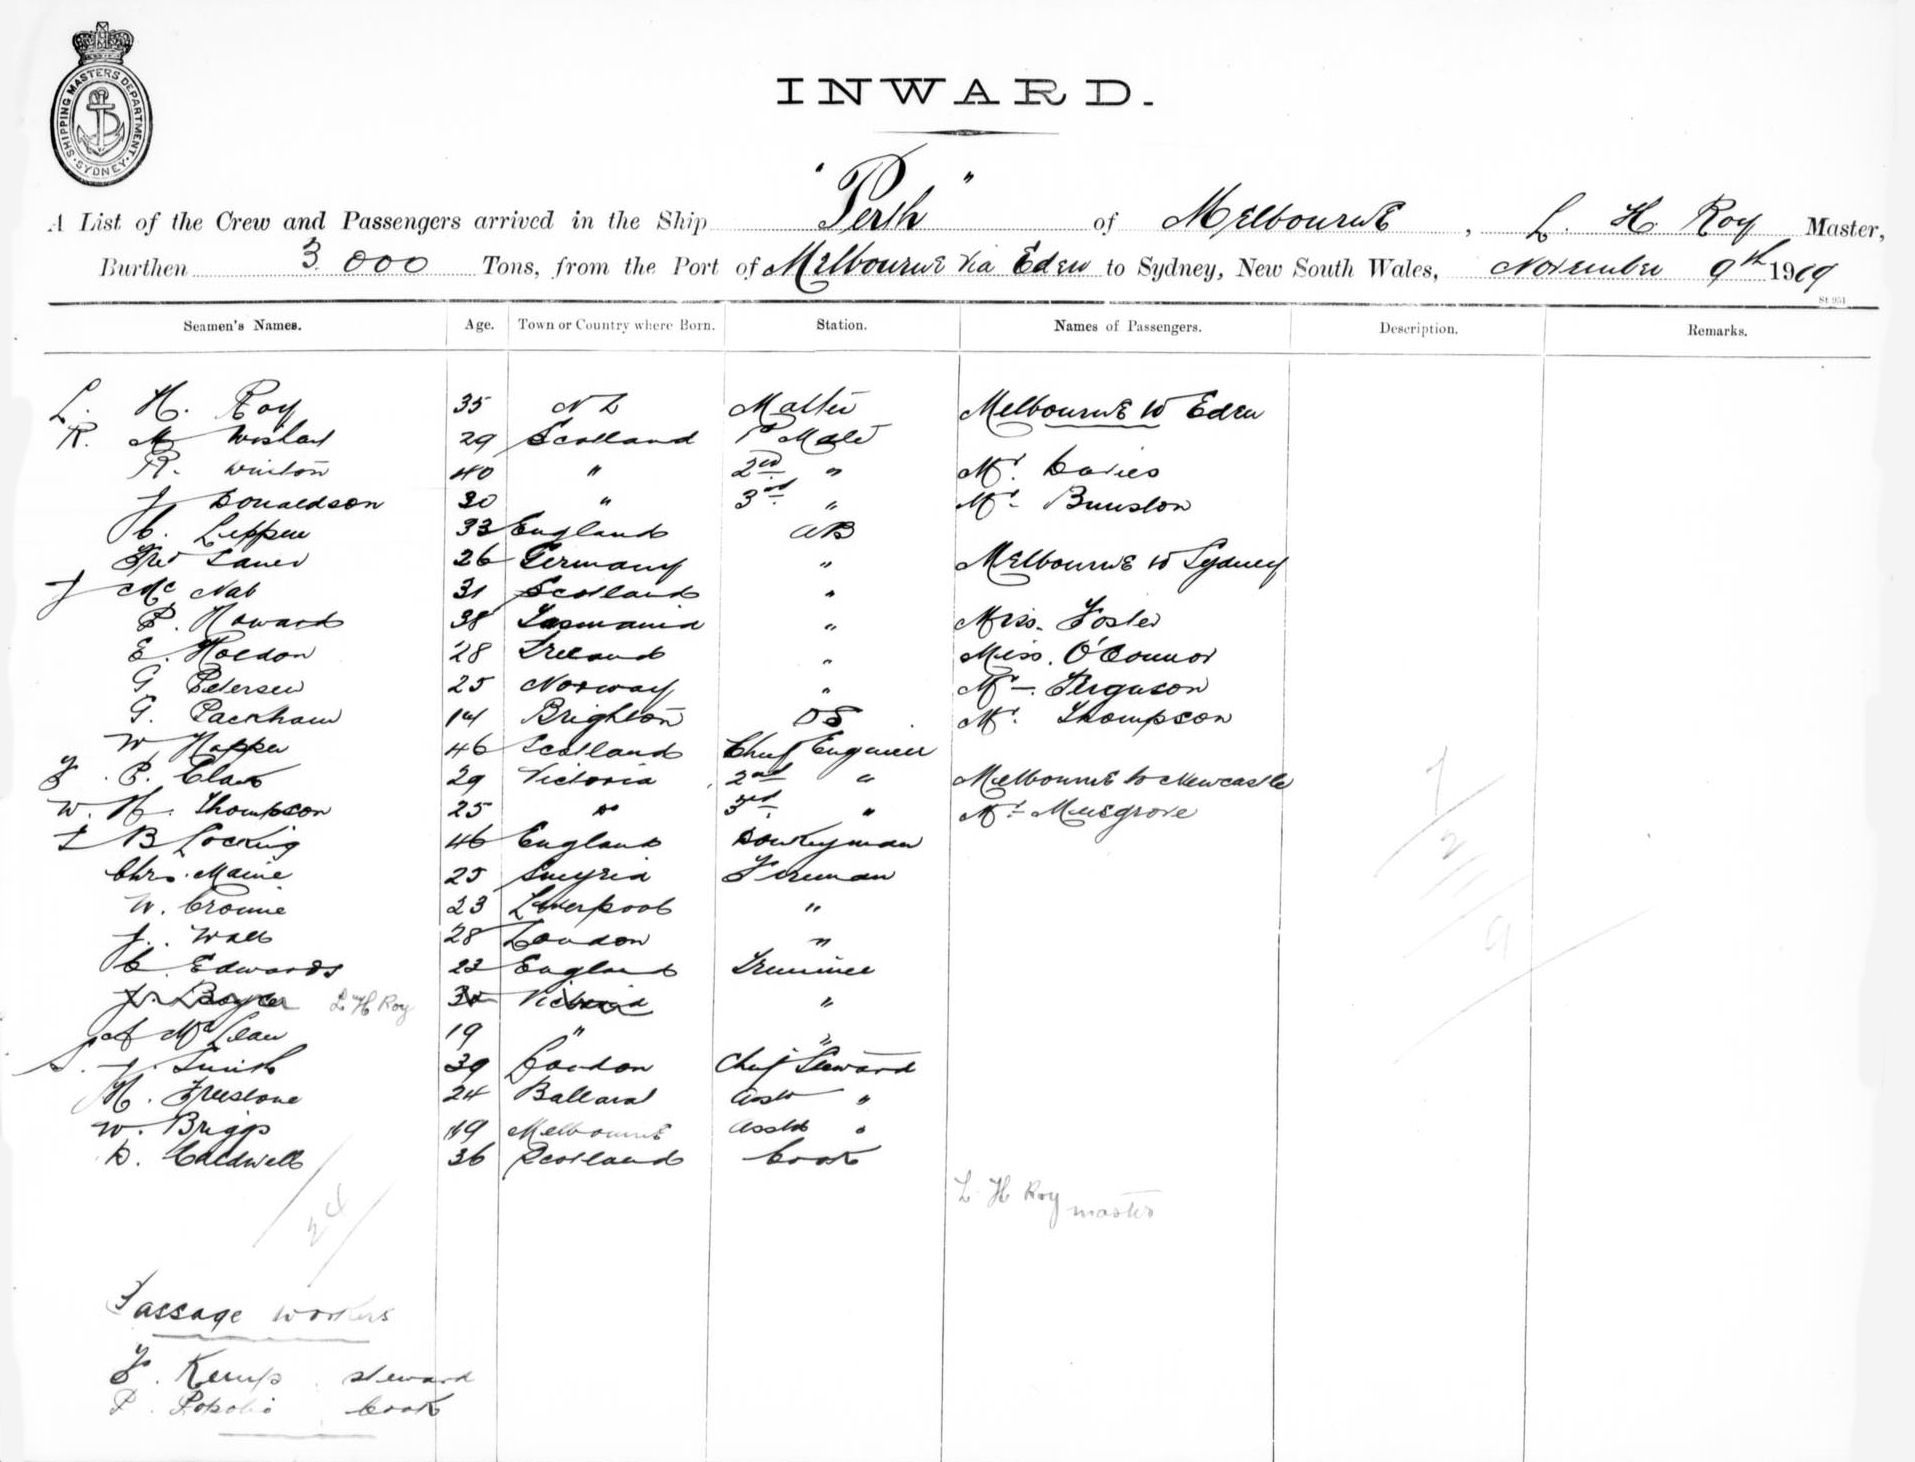 SHIPPING MASTERS DEPARTMENT
SYDNEY
INWARD.
A List of the Crew and Passengers arrived in the Ship "Perth" of Melbourne, L. H. Roy Master,
Burthen 3.000 Tons, from the Port of Melbourne via Eden to Sydney, New South Wales, November 9th 1909
St 951
Seamen's Names. Age. Town or Country where Born. Station. Names of Passengers. Description. Remarks.
L. H. Roy 35 Master Melbourne to Eden
R. M 29 Scotland 1st Mate
R. Winton 40 " 2nd " Mr. Davies
J Donaldson 30 " 3rd " Mr. Bunston
C. 33 England AB
26 Germany " Melbourne to Sydney
J Mc Nab 31 Scotland "
P. Howard 38 Tasmania " Miss. Foster
E. Holdon 28 Ireland " Miss. O'Connor
G Petersen 25 Norway " Mr. Ferguson
G. Packham 14 Brighton OS Mr. Thompson
W 46 Scotland Chief Engineer
F. P. Clark 29 Victoria 2nd " Melbourne to Newcastle
W. H. Thompson 25 " 3rd " Mr. Musgrove
B Locking 46 England Donkeyman
Chrs. Maine 25 Fireman
W. 23 Liverpool "
J. Wall 28 London "
C. Edwards 23 England Trimmer
L H Roy Victoria "
A McLean 19 " "
S. J. Smith 39 London Chief Steward
H. Freestone 24 Ballarat Asst "
W. Briggs 19 Melbourne Asst "
D. Caldwell 36 Scotland Cook
L. H Roy
master
24
7
2
9
Passage workers
F. Kemp steward
P. cook